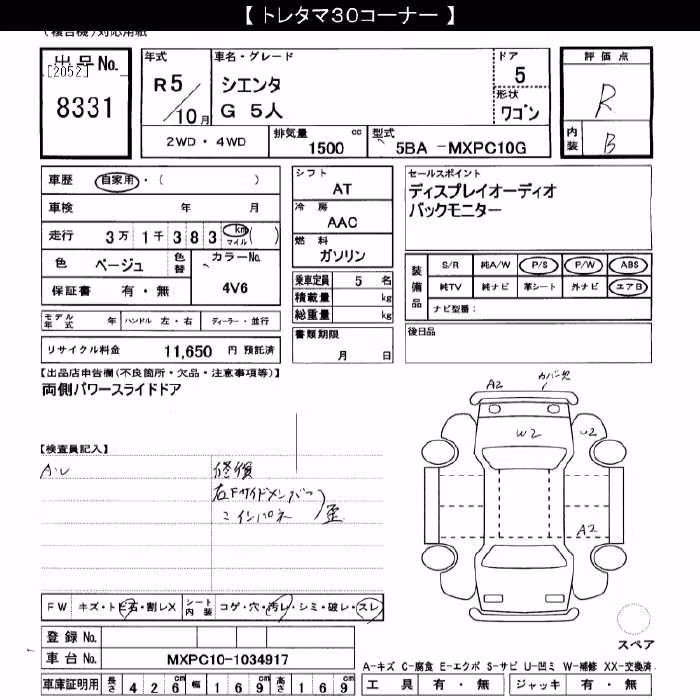 【 トレタマ30コーナー 】
(複合機)対応用紙
出品No.
[2052]
8331
年式
R5
10月
車名・グレード
シエンタ
G 5人
ドア
5
形状
ワゴン
評価点
R
内装
B
2WD・4WD
排気量 1500 cc
型式 5BA -MXPC10G
車歴 自家用・( )
車検 年 月
走行 3万 1千 3 8 3 km マイル ( )
色 ベージュ 色替
カラーNo.
4V6
保証書 有・無
モデル年式 年 ハンドル 左・右 ディーラー・並行
リサイクル料金 11,650 円 預託済
シフト
AT
冷房
AAC
燃料
ガソリン
乗車定員 5 名
積載量 kg
総重量 kg
書類期限
月 日
セールスポイント
ディスプレイオーディオ
バックモニター
装備品
S/R 純A/W P/S P/W ABS
純TV 純ナビ 革シート 外ナビ エアB
ナビ型番:
後日品
【出品店申告欄(不良箇所・欠品・注意事項等)】
両側パワースライドドア
【検査員記入】
AU
修復
右Fサイドメンバー
ミインパネ
歪
A2
カバー欠
W2
U2
A2
スペア
FW キズ・トビ石・割レX シート内装 コゲ・穴・汚レ・シミ・破レ・スレ
登録 No.
車台 No. MXPC10-1034917
車庫証明用 長さ 4 2 6 幅 1 6 9 高さ 1 6 9
A-キズ C-腐食 E-エクボ S-サビ U-凹ミ W-補修 XX-交換済
工具 有・無 ジャッキ 有・無